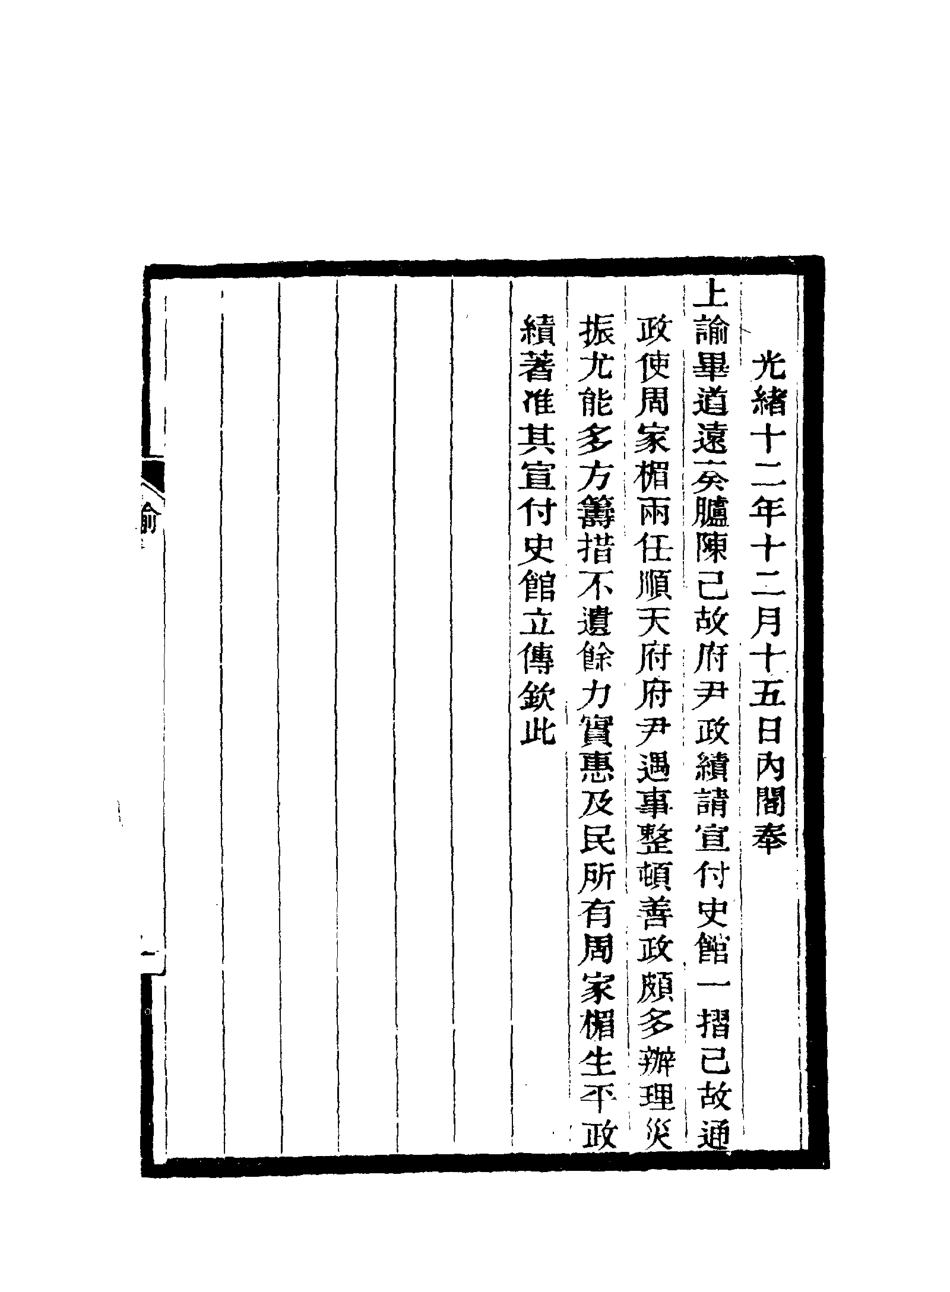 光緒十二年十二月十五日內閣奉
上諭畢道遠奏臚陳已故府尹政績請宣付史館一摺已故通
政使周家楣兩任順天府府尹遇事整頓善政頗多辦理災
振尤能多方籌措不遺餘力實惠及民所有周家楣生平政
績著准其宣付史館立傳欽此
諭
一